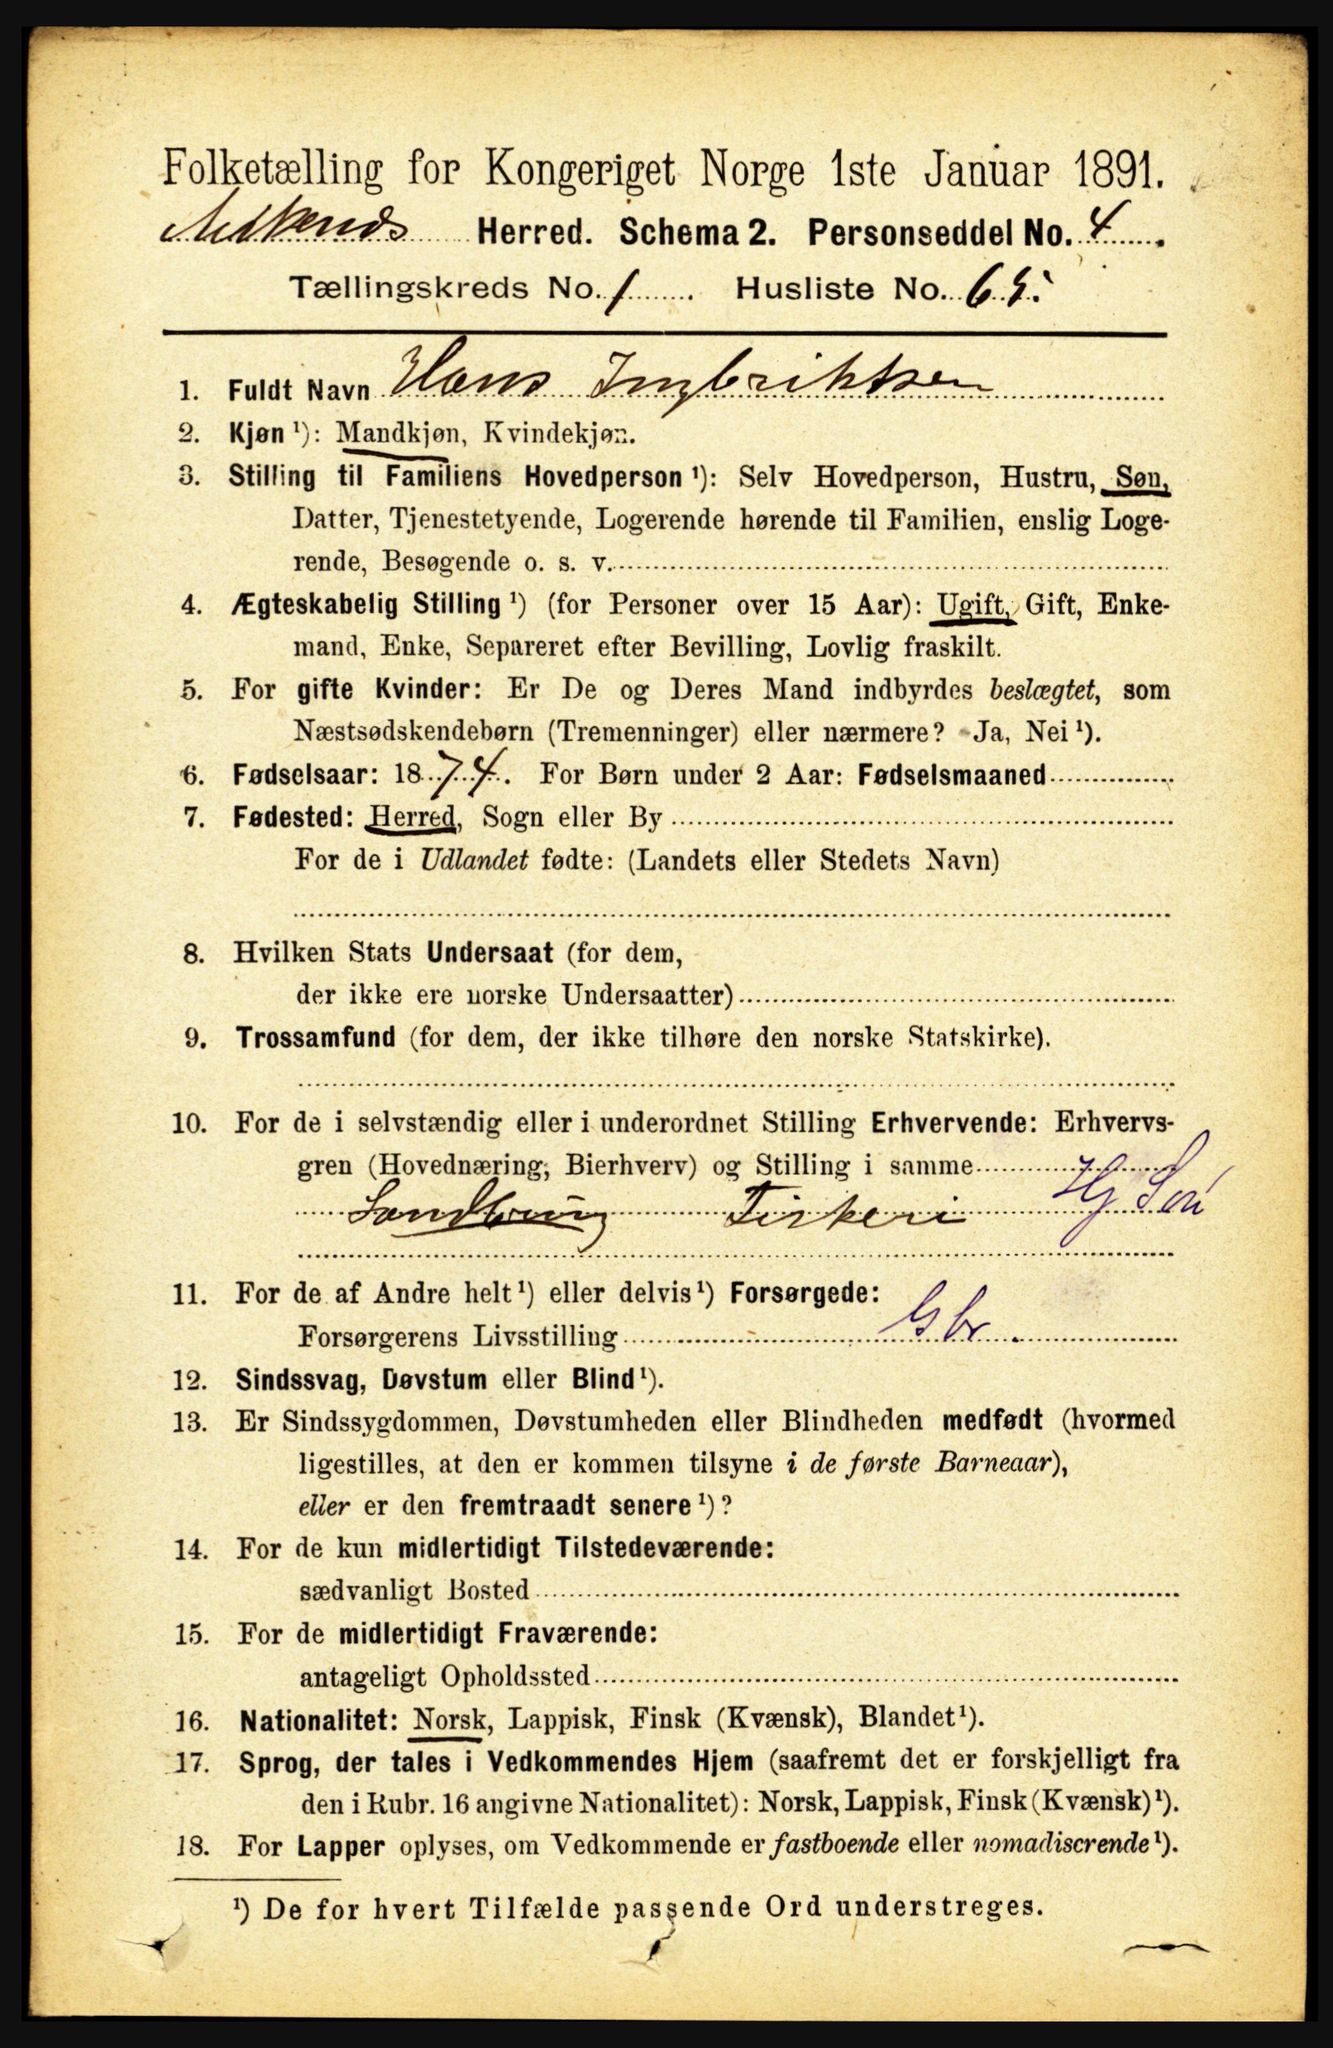 Folketælling for Kongeriget Norge 1ste Januar 1891.
Herred. Schema 2. Personseddel No. 4
Tællingskreds No. 1 Husliste No. 65.
1. Fuldt Navn Hans Ingbriktsen
2. Kjøn ¹): Mandkjøn, Kvindekjøn.
3. Stilling til Familiens Hovedperson ¹): Selv Hovedperson, Hustru, Søn,
Datter, Tjenestetyende, Logerende hørende til Familien, enslig Loge-
rende, Besøgende o. s. v.
4. Ægteskabelig Stilling ¹) (for Personer over 15 Aar): Ugift, Gift, Enke-
mand, Enke, Separeret efter Bevilling, Lovlig fraskilt.
5. For gifte Kvinder: Er De og Deres Mand indbyrdes beslægtet, som
Næstsødskendebørn (Tremenninger) eller nærmere? Ja, Nei ¹).
6. Fødselsaar: 1874. For Børn under 2 Aar: Fødselsmaaned
7. Fødested: Herred, Sogn eller By
For de i Udlandet fødte: (Landets eller Stedets Navn)
8. Hvilken Stats Undersaat (for dem,
der ikke ere norske Undersaatter)
9. Trossamfund (for dem, der ikke tilhøre den norske Statskirke).
10. For de i selvstændig eller i underordnet Stilling Erhvervende: Erhvervs-
gren (Hovednæring, Bierhverv) og Stilling i samme
Fiskeri Hj
11. For de af Andre helt ¹) eller delvis ¹) Forsørgede:
Forsørgerens Livsstilling Gbr.
12. Sindssvag, Døvstum eller Blind ¹).
13. Er Sindssygdommen, Døvstumheden eller Blindheden medfødt (hvormed
ligestilles, at den er kommen tilsyne i de første Barneaar),
eller er den fremtraadt senere ¹)?
14. For de kun midlertidigt Tilstedeværende:
sædvanligt Bosted
15. For de midlertidigt Fraværende:
antageligt Opholdssted
16. Nationalitet: Norsk, Lappisk, Finsk (Kvænsk), Blandet ¹).
17. Sprog, der tales i Vedkommendes Hjem (saafremt det er forskjelligt fra
den i Rubr. 16 angivne Nationalitet): Norsk, Lappisk, Finsk (Kvænsk) ¹).
18. For Lapper oplyses, om Vedkommende er fastboende eller nomadiserende ¹).
¹) De for hvert Tilfælde passende Ord understreges.